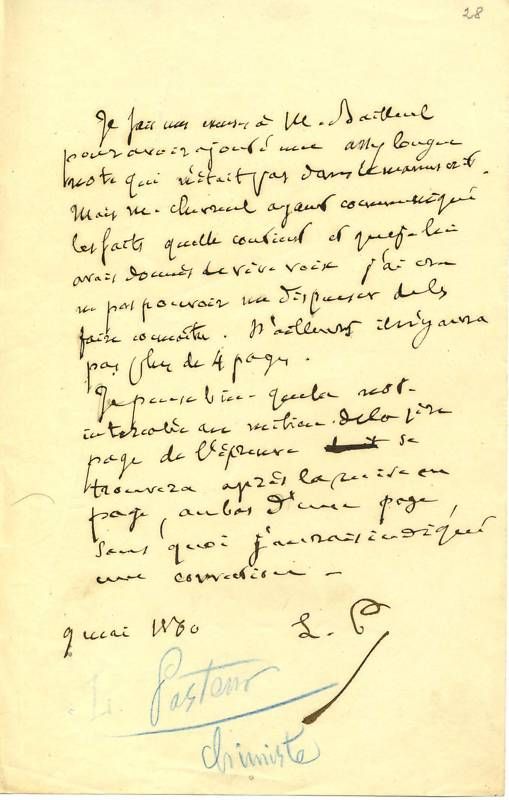 28
Je fais mes excuses à M. Bailleul
pour avoir ajouté une assez longue
note qui n'était pas dans le manuscrit.
Mais M. Chevreul ayant communiqué
les faits qu'elle contient et que je lui
avais donnés de vive voix j'ai cru
ne pas pouvoir me dispenser de les
faire connaître. D'ailleurs il n'y aura
pas plus de 4 pages.
Je pense bien que la note
intercalée au milieu de la 1ère
page de l'épreuve se
trouvera après la mise en
page, au bas d'une page
sans quoi j'aurais indiqué
une correction –
9 mai 1860 L. P
L. Pasteur
chimiste